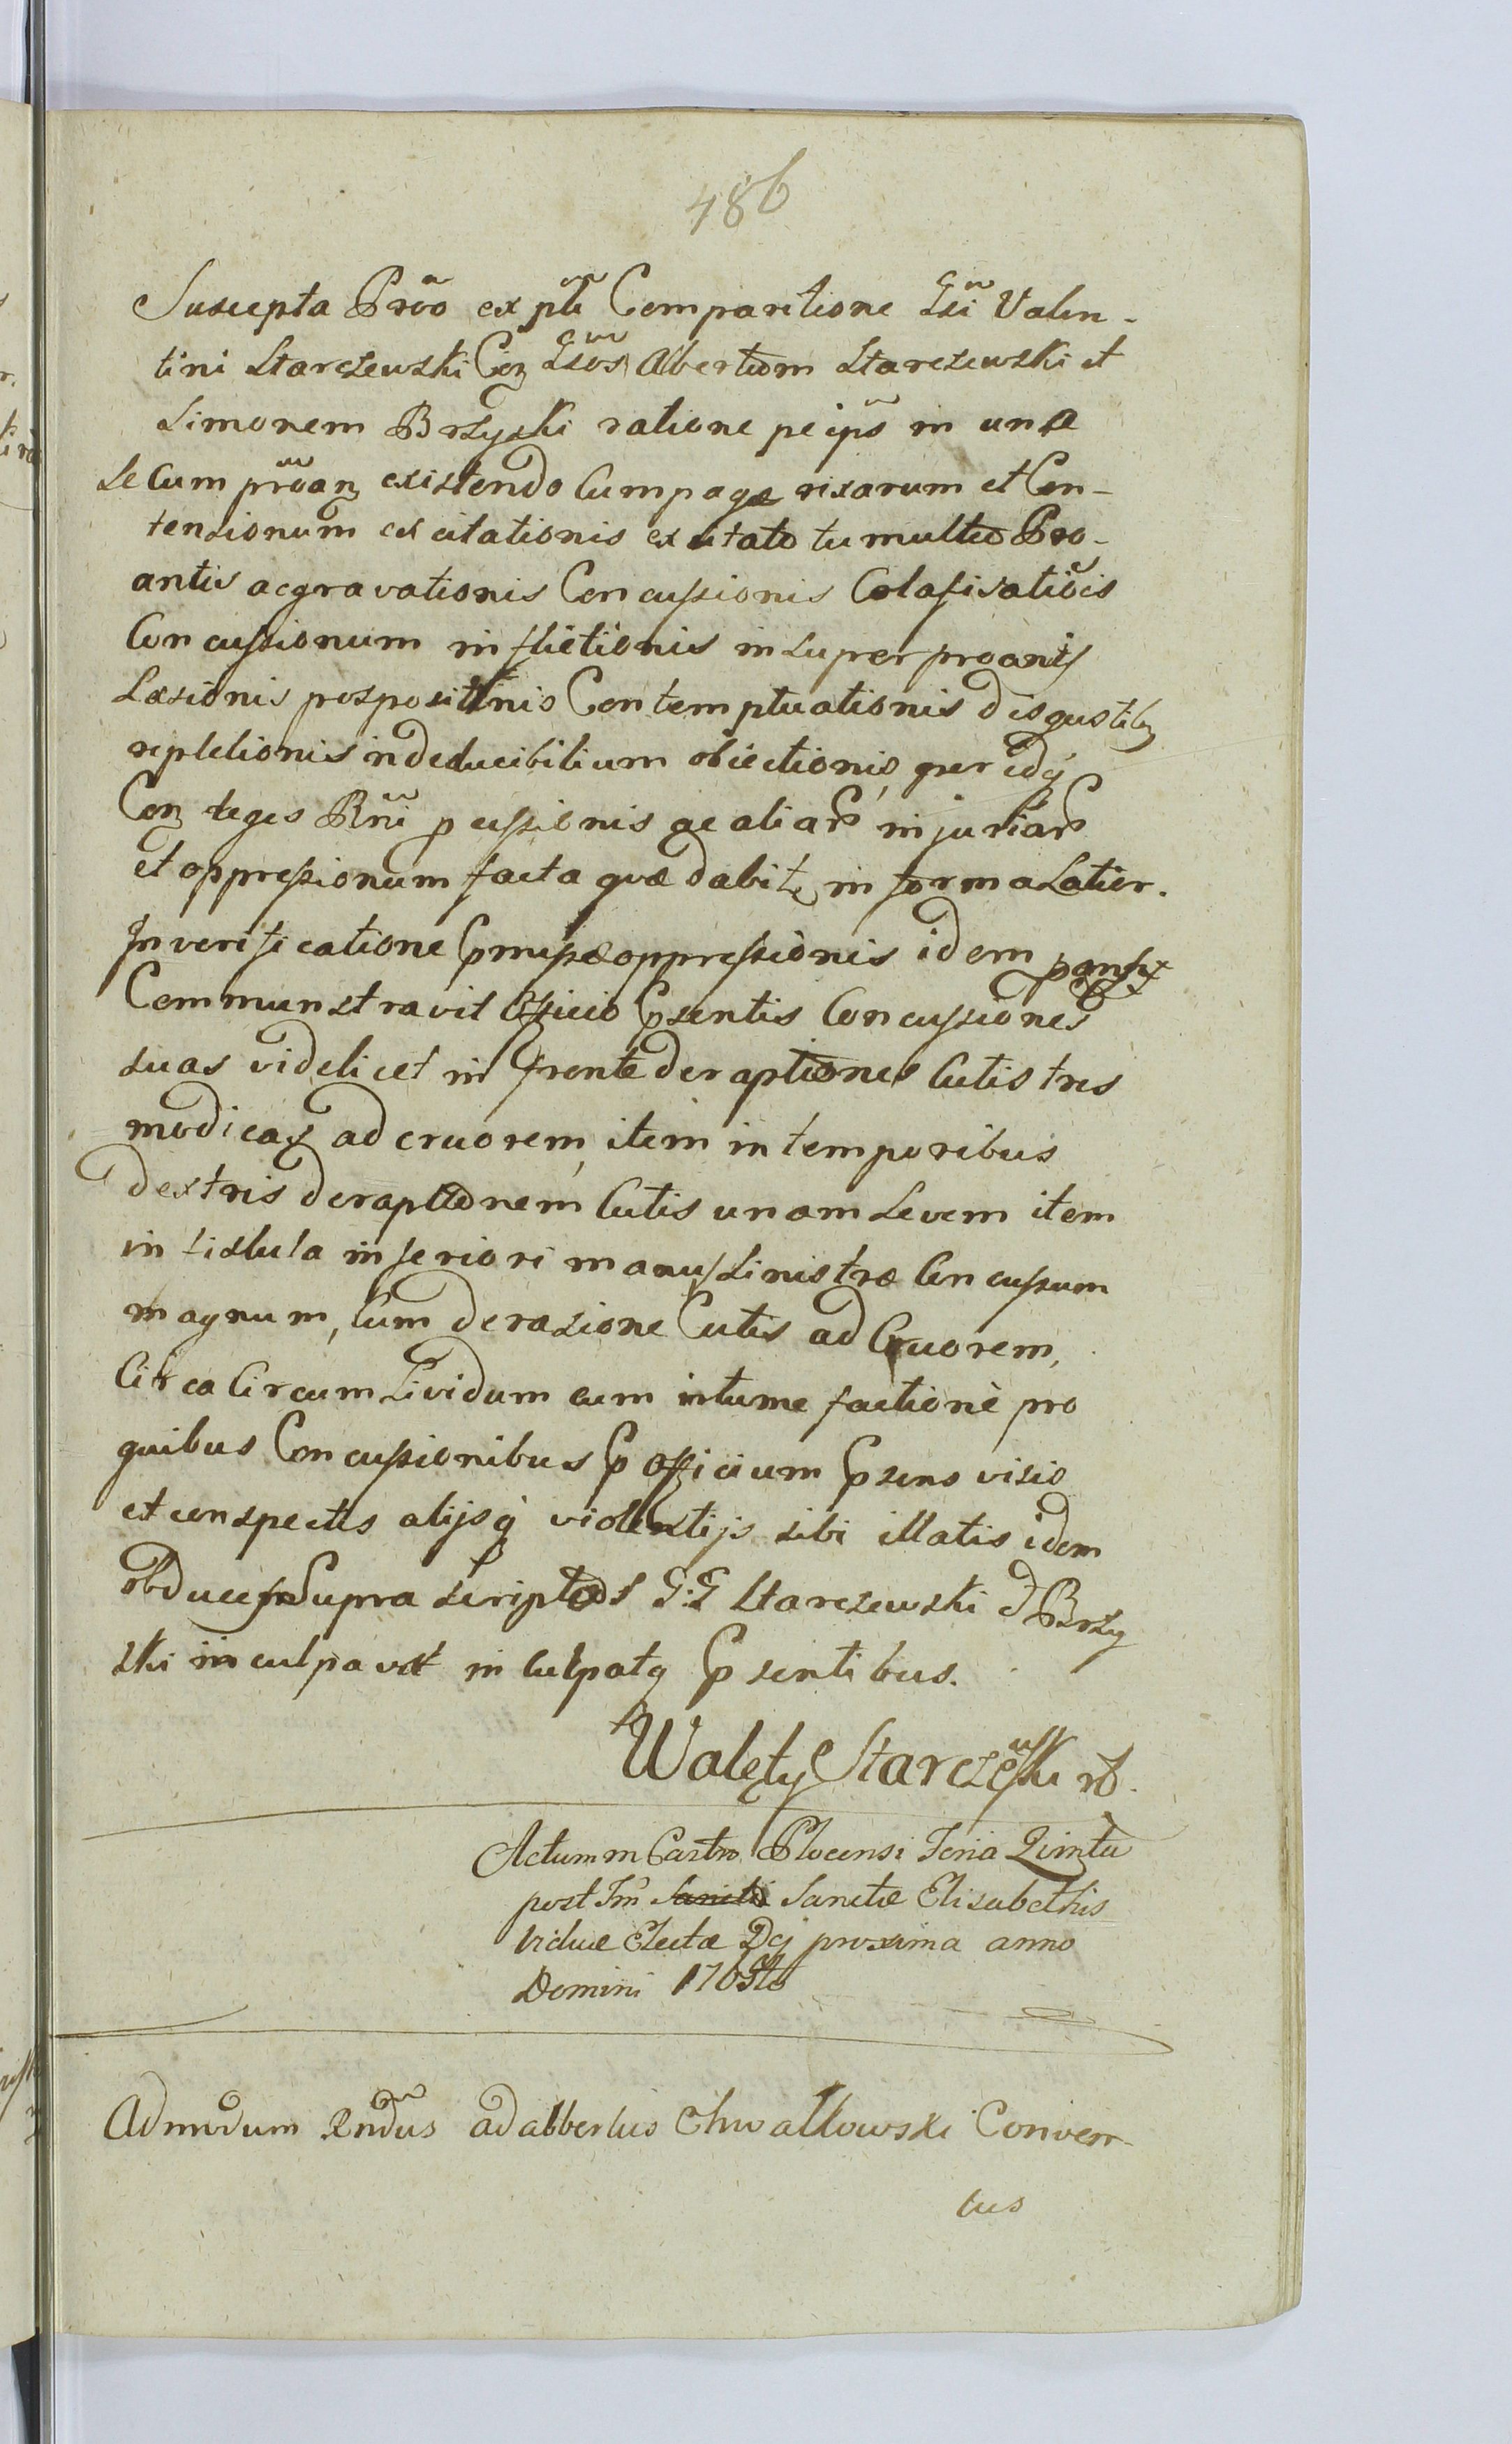 486
Suscepta Prõo ex pti Comparitione Gsi Valen-
tini Starczewski Con Gsos Albertum Starczewski et
Simonem Brzyski ratione peipõ in una
secum prõan existendo Cumpagæ rixarum et Con-
tensionum excitationis excitato tumultu Pro-
antis aggravationis Concussionis Colafisatiõis
Concussionum inflictionis insuper proantis
Læsionis pospositinis Contemptuationis disgustibz
repletionis indeducibilium obiectionis, per idq
Con leges Rñi pcussionis ac aliar injuriar
et oppressionum facta quæ dabitr in forma Latior.
In verificatione pmissæ oppressionis idem
Communstravit Officio psentis Concussiones
suas videlicet in fronte deraptiones Cutis tres
modicas ad cruorem, item in temporibus
dextris deraptionem Cutis unam Levem item
in fistula inferiori manus sinistræ Concussum
magnum, Cum derasione Cutis ad Cruorem,
Circa Circum Lividum cum intumefactione pro
quibus Concussionibus p officium psens visio
et conspectis alijsq violentijs sibi illatis idem
obducens Supra scriptos G:G Starczewski et Brzy
ski inculpavit in Culpatq psentibus.
Walęty Starczewski
Actum in Castro Plocensi Feria Quinta
post Fm Sanctæ Elisabethis
Viduæ Electæ Dej proxima anno
Domini
Admodum Rndus adalbertus Chwalkowski Conven-
tus